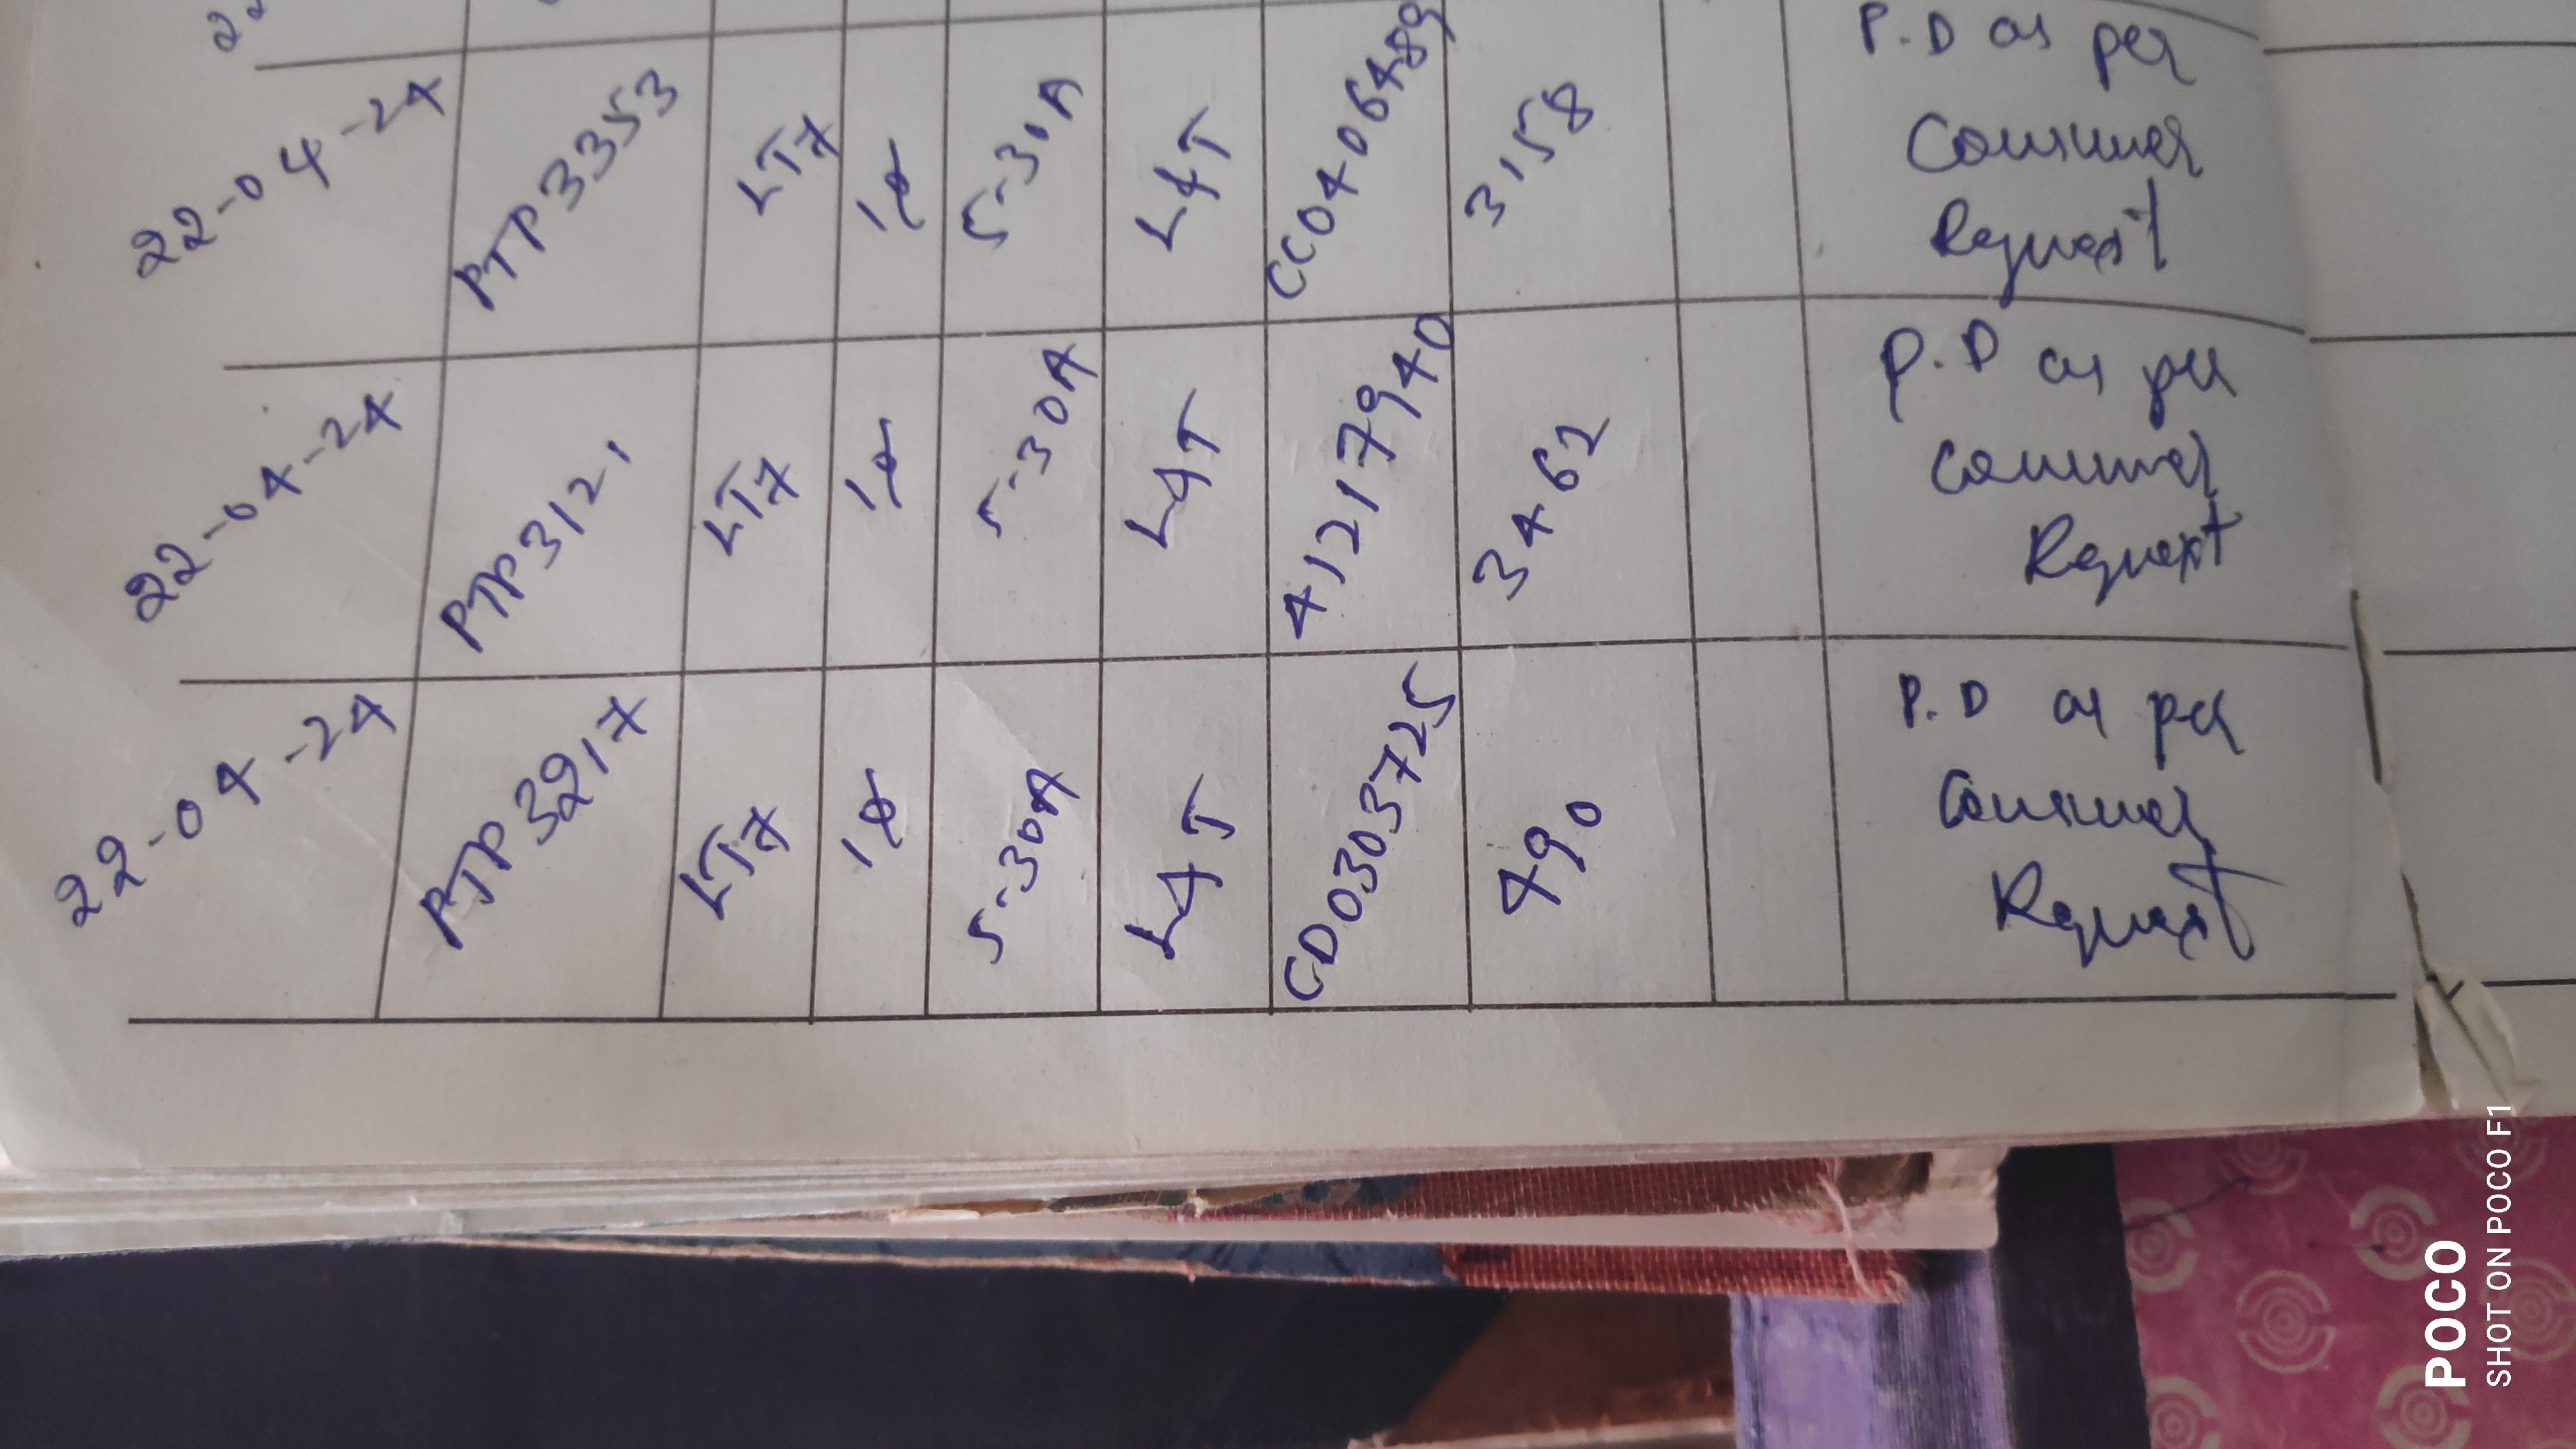 22-04-24 PTP3353 LT7 1ф 5-30A L&T CC0406489 3158 P.D as per
Consumer
Request
22-04-24 PTP3121 LT7 1ф 5-30A L&T 41217940 3462 P.D as per
Consumer
Request
22-04-24 PTP3217 LT7 1ф 5-30A L&T CD0303725 490 P.D as per
Consumer
Request
POCO
SHOT ON POCO F1